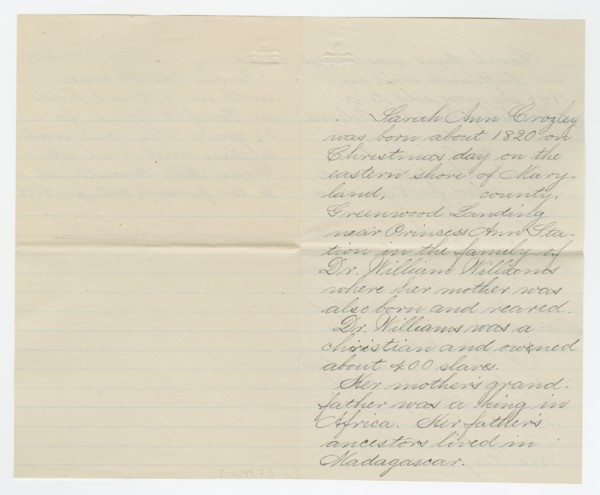 Sarah Ann Crozley
was born about 1820 on
Christmas day on the
eastern shore of Mary-
land, county,
Greenwood Landing
near Princess Ann Sta-
tion in the family of
Dr. William Williams
where her mother was
also born and reared.
Dr. Williams was a
christian and owned
about 400 slaves.
Her mother's grand-
father was a king in
Africa. Her father's
ancestors lived in
Madagascar.